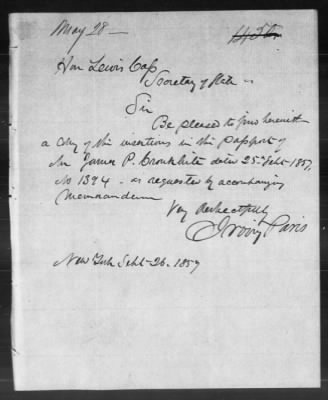 May 28 —
Hon Lewis Cass
Secretary of State
Sir
Be pleased to find herewith
a copy of the insertions in the passport of
Mr James P. Cronkhite dated 25 Sept 1857,
No 1394 - as requested by accompanying
Memorandum
Very Respectfully
Irving Paris
New York Sept 26. 1857